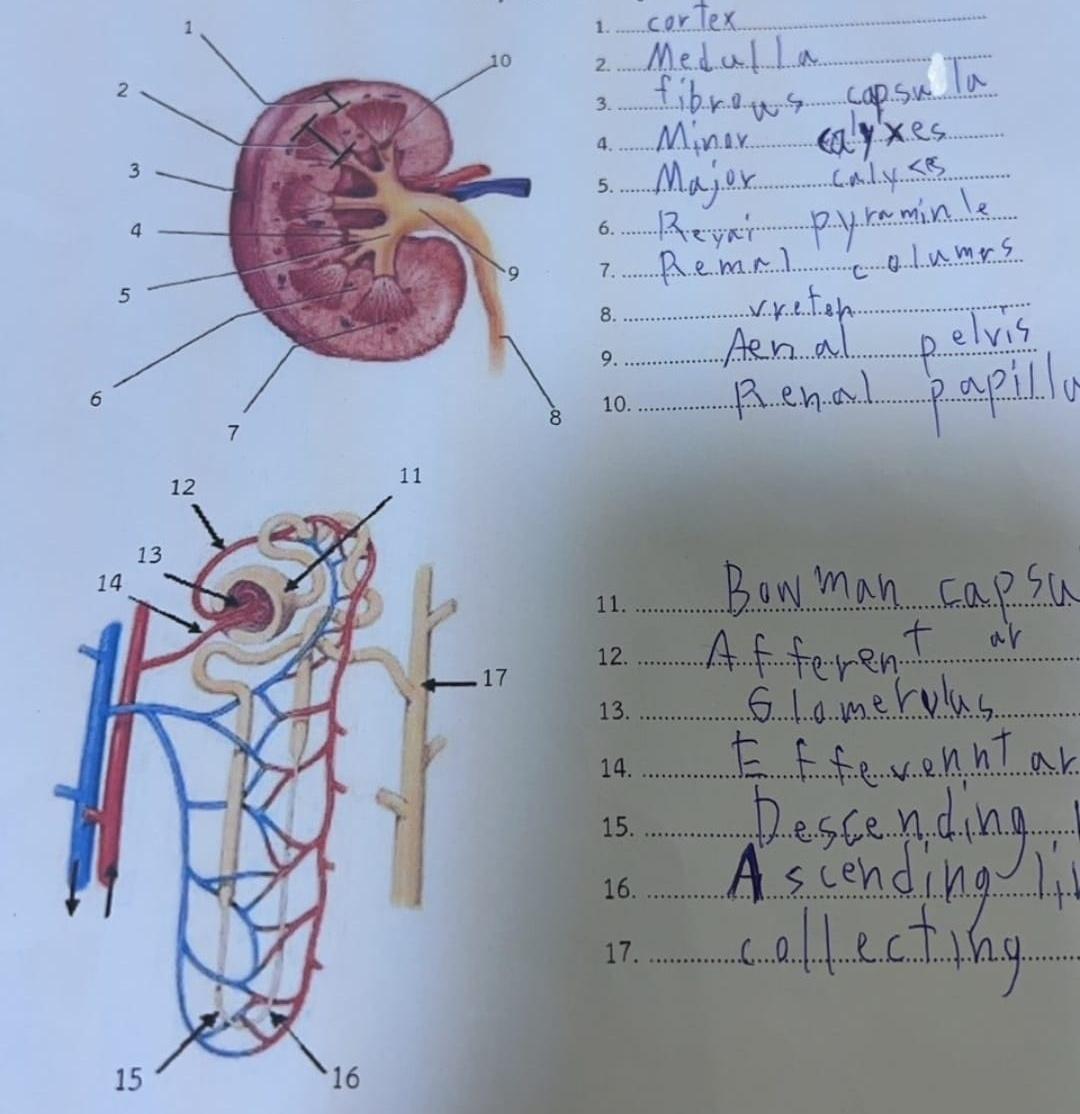 1
2
3
4
5
6
7
8
9
10
1. cortex
2. Medulla
3. fibrous capsulla
4. Minor calyxes
5. Major calyces
6. Reyai pyraminle
7. Remal columrs
8. vreten
9. Aenal pelvis
10. Renal papilla
11
12
13
14
15
16
17
11. Bowman capsu
12. Afferent ar
13. Glomerulus
14. Efferennt ar
15. Descending l
16. Ascending li
17. collecting